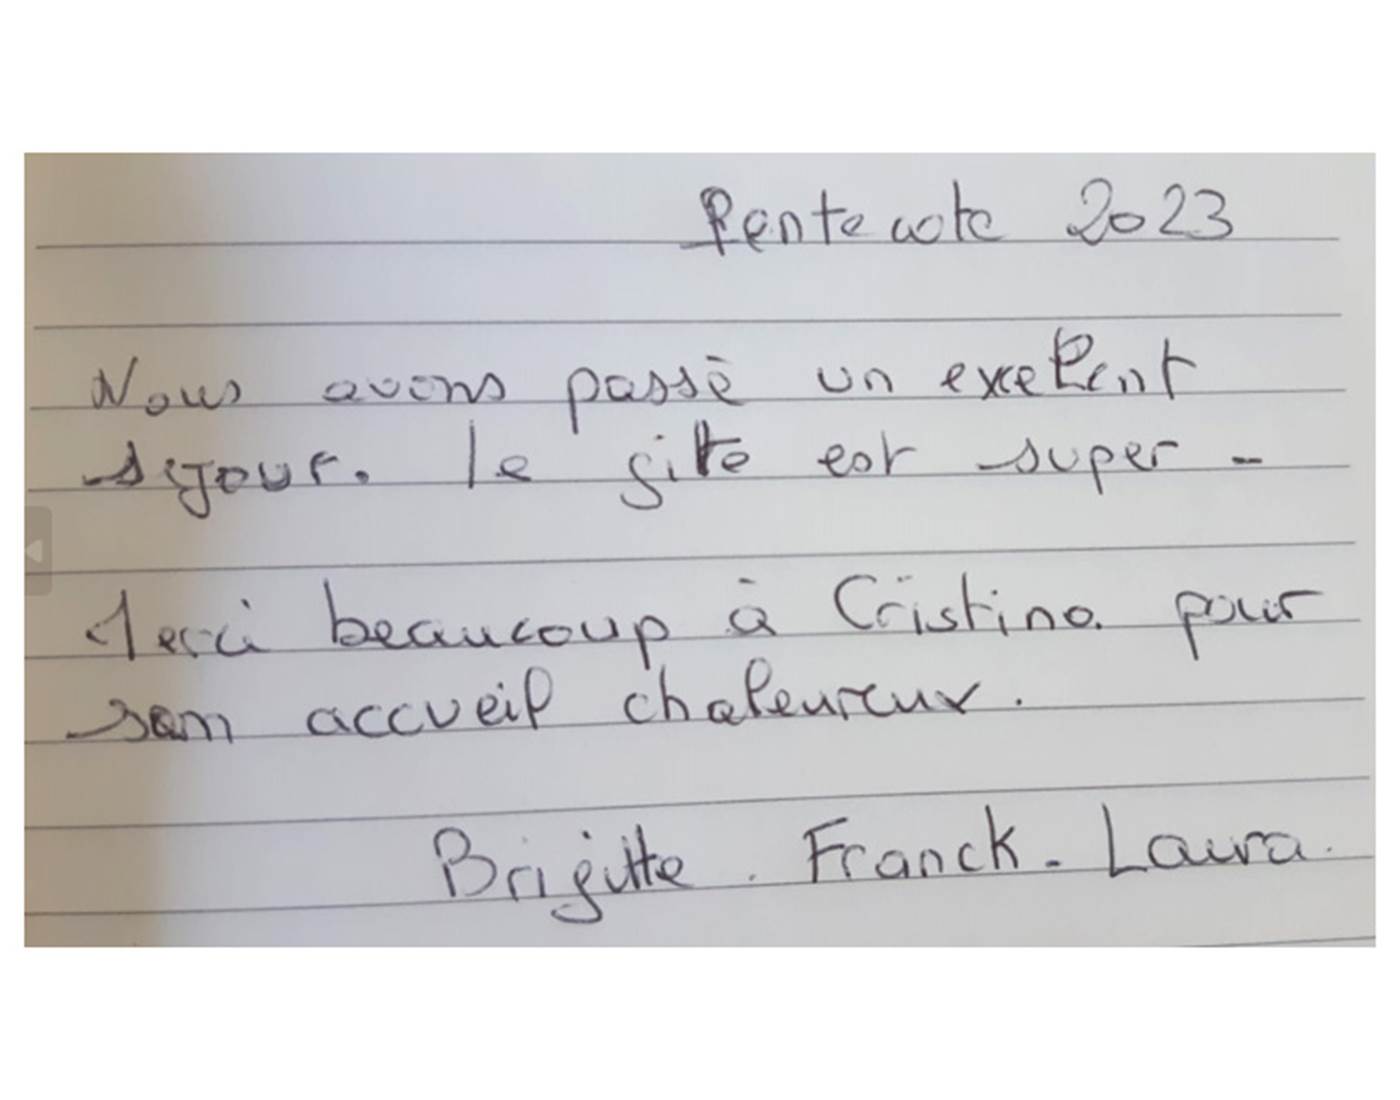 Pentecote 2023
Nous avons passé un exelent
sejour. le gite est super -
Merci beaucoup à Cristina pour
son accueil chaleureux.
Brigitte. Franck - Laura.